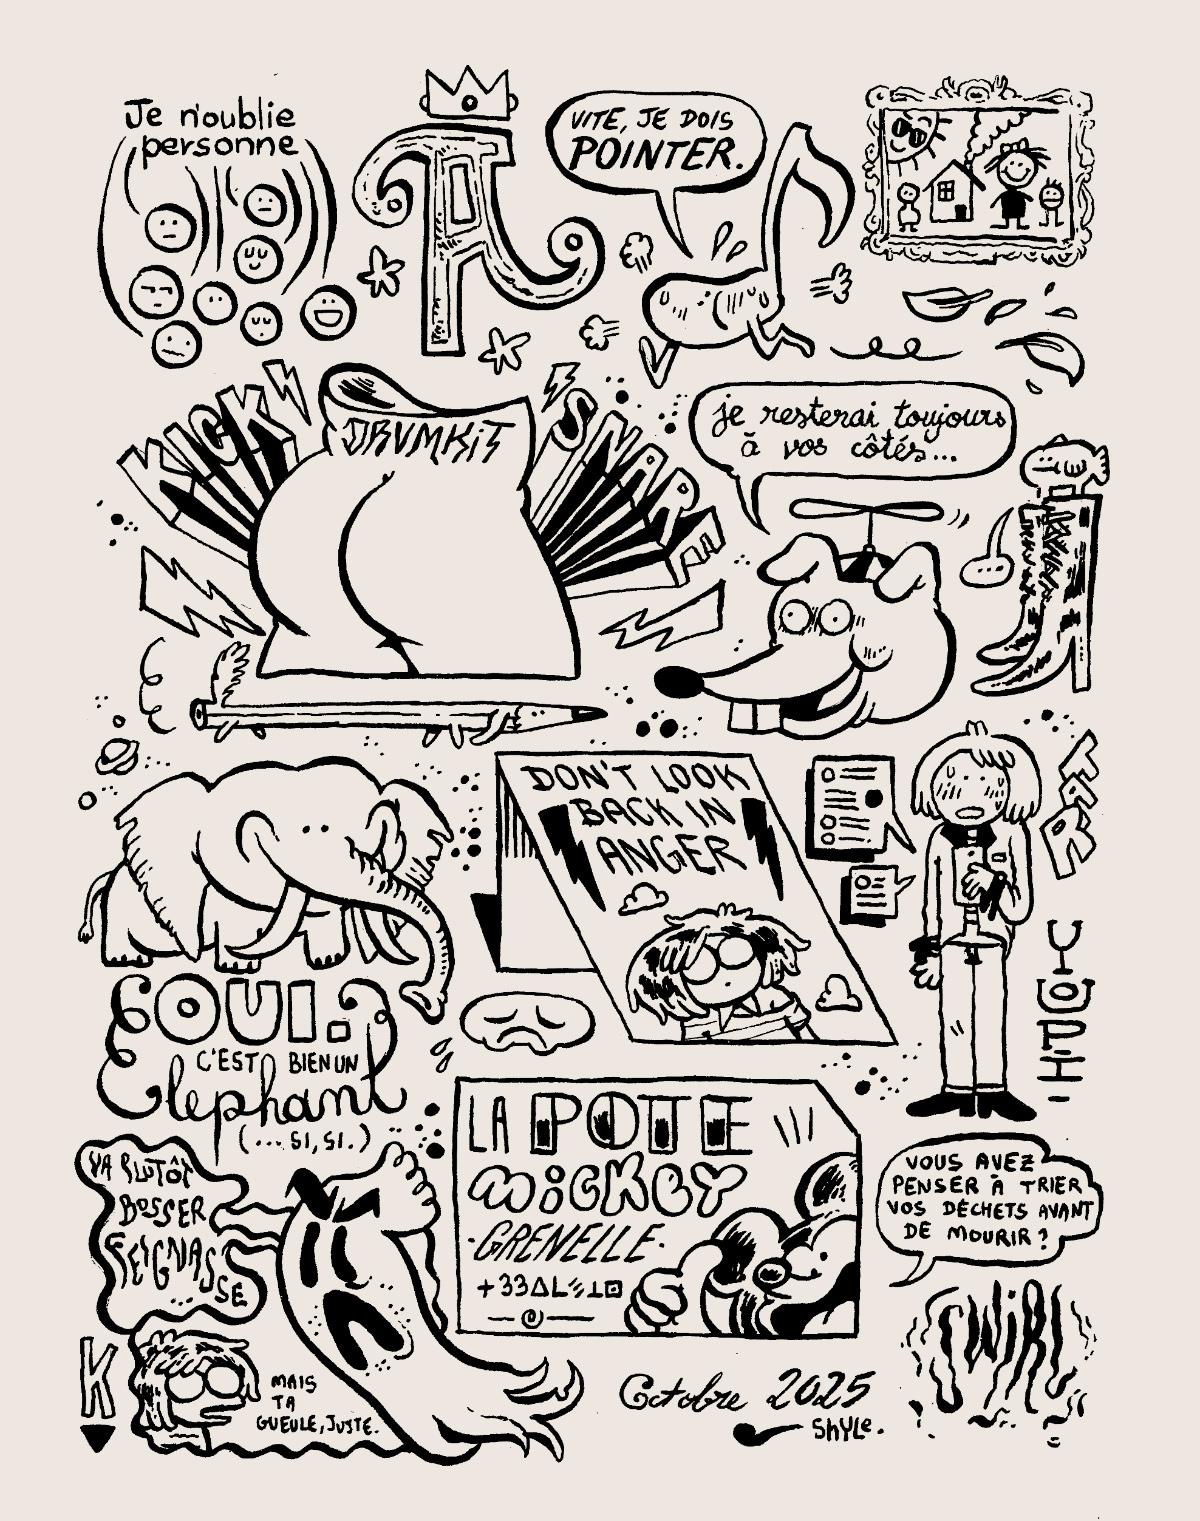 Je n'oublie
personne
A
VITE, JE DOIS
POINTER.
KICK
DRUMKIT
SNARE
je resterai toujours
à vos côtés...
...
DON'T LOOK
BACK IN
ANGER
YOUPI
OUI.
C'EST BIEN UN
Elephant
(... SI, SI.)
LA POTE
MiCKEY
-GRENELLE-
+33
VA PLUTÔT
BOSSER
FEIGNAS
...SE
K
MAIS
TA
GUEULE, JUSTE.
VOUS AVEZ
PENSER À TRIER
VOS DÉCHETS AVANT
DE MOURIR?
TWiRL
Octobre 2025
ShYLe.